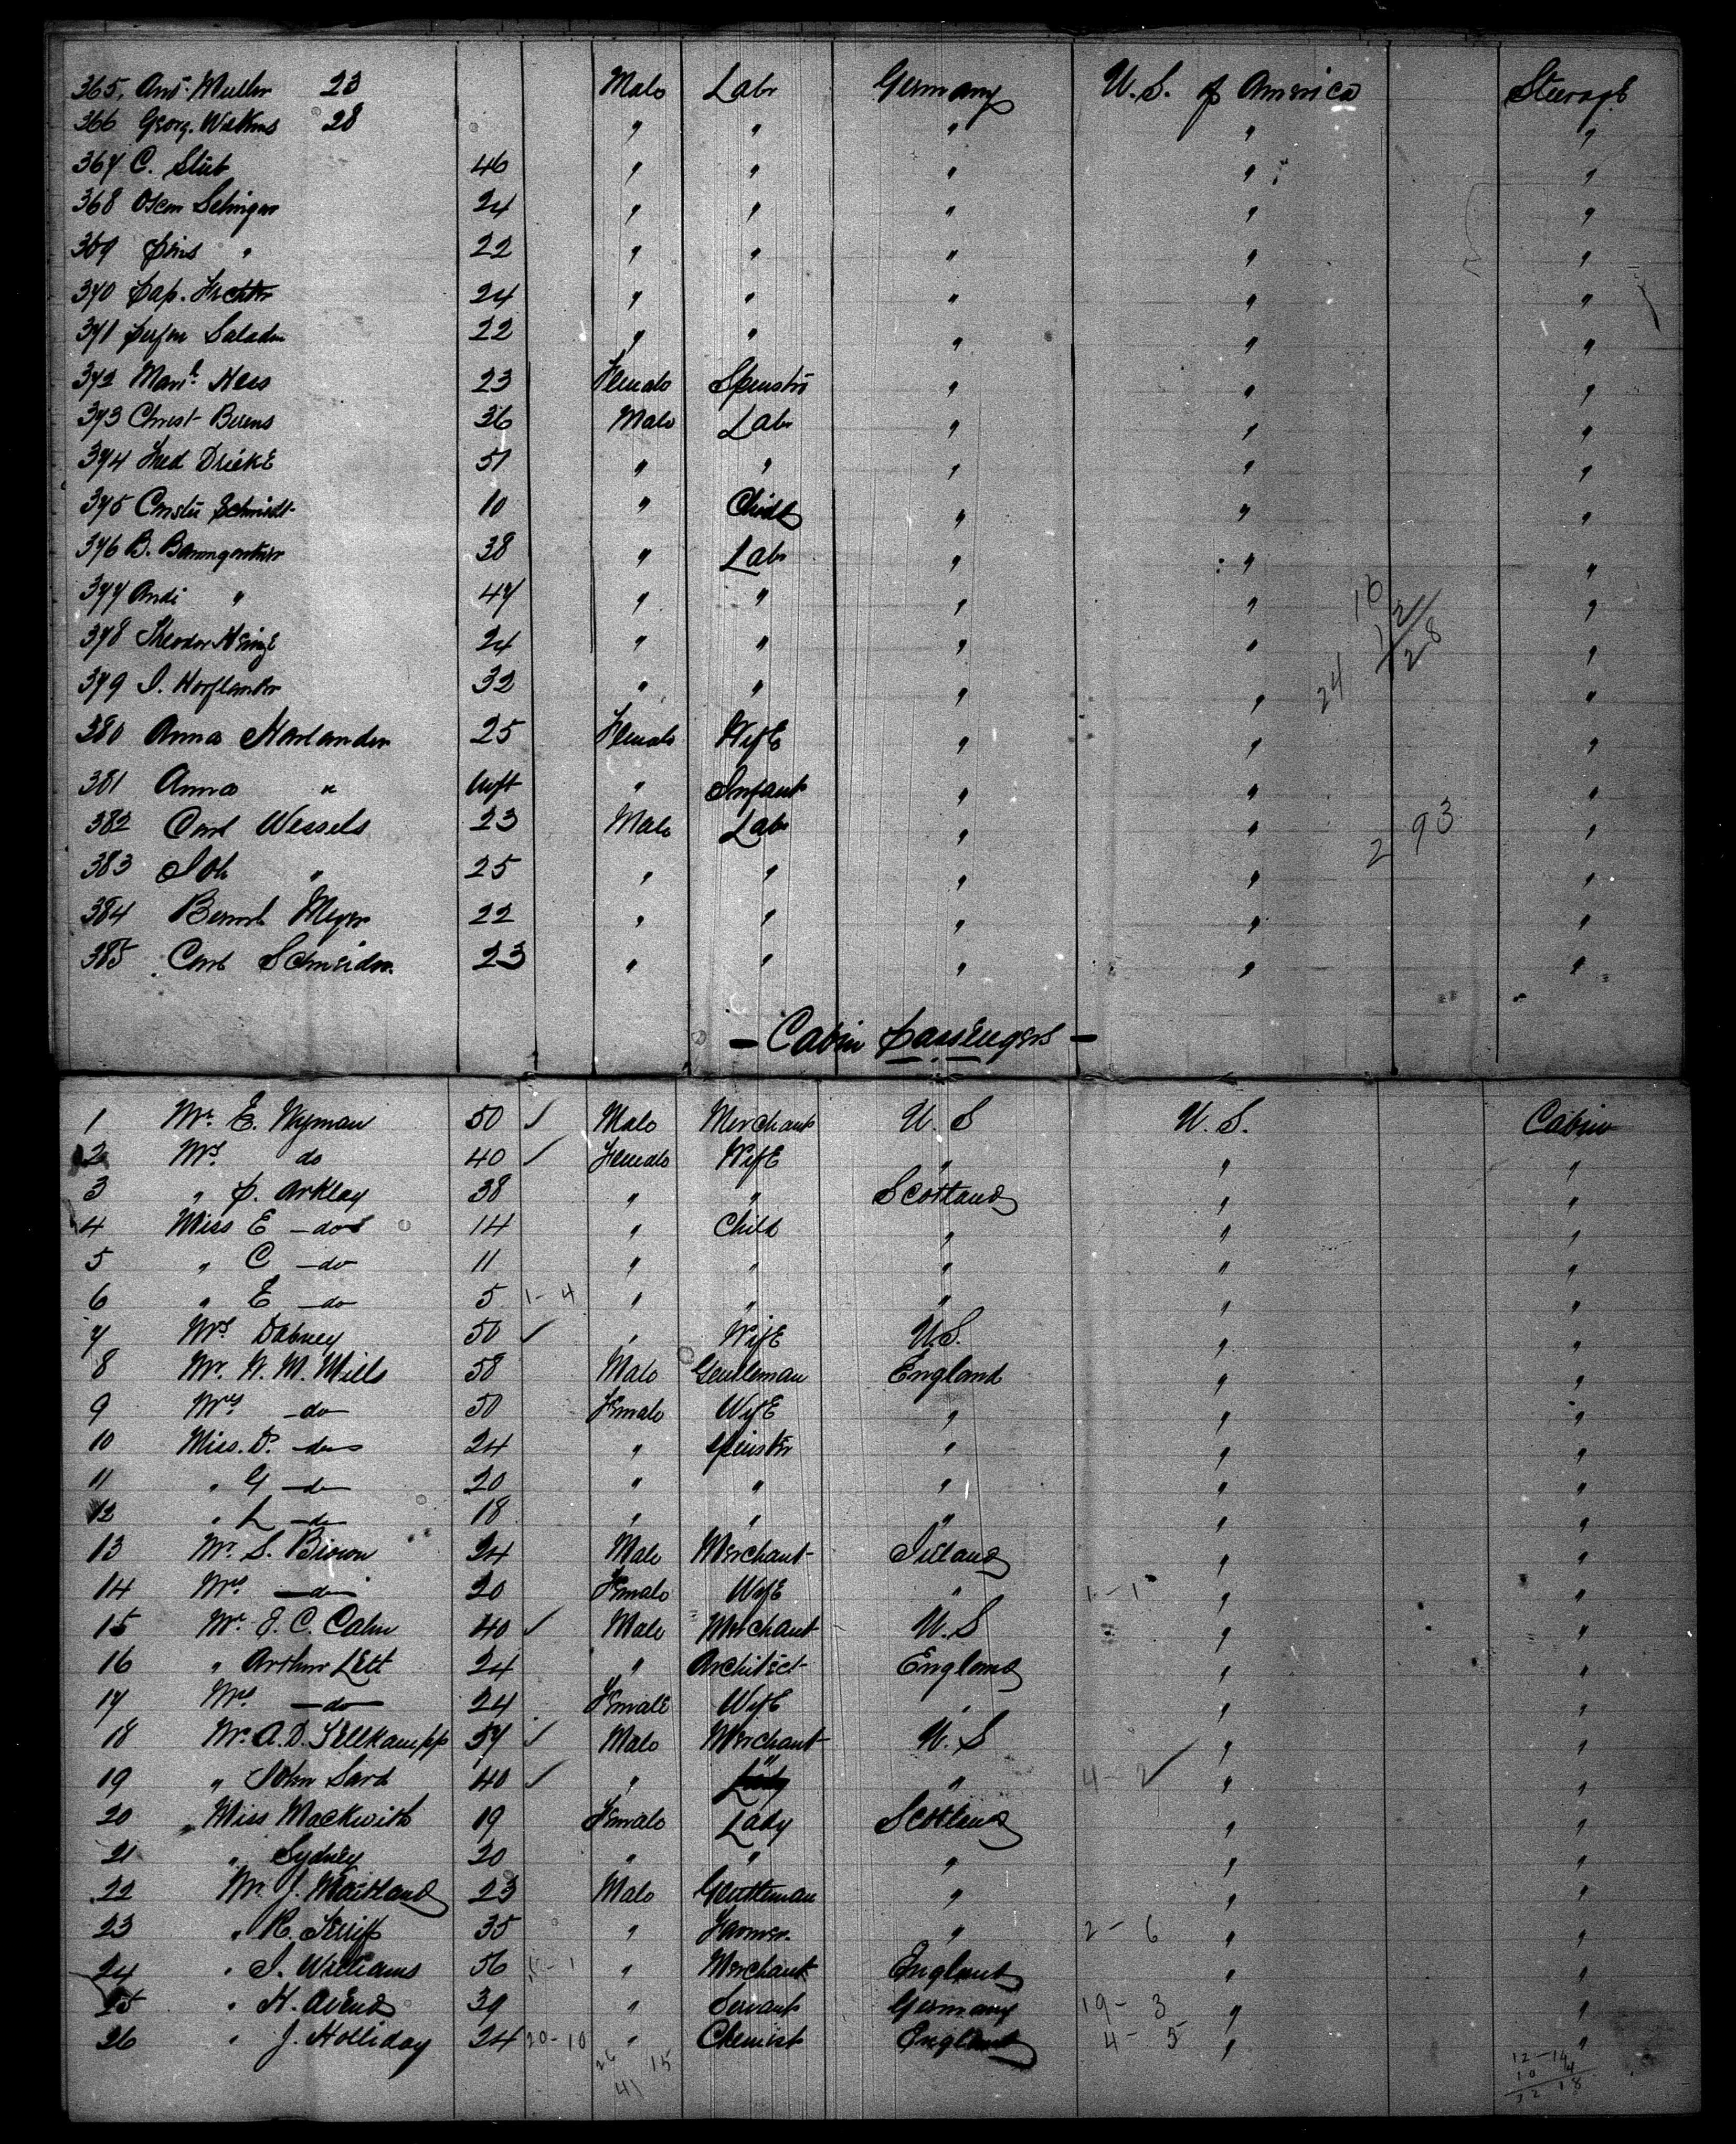 365. And. Muller 23 Male Labr Germany U.S. of America Steerage
366 Georg. Wilkins 28 " " " " "
367 C. Stüb 46 " " " " "
368 Oscar Selinger 24 " " " " "
369 " 22 " " " " "
370 24 " " " " "
371 Saladin 22 " " " " "
372 Mar. Hess 23 Female Spinster " " "
373 Christ Berens 36 Male Labr " " "
374 Fred Drieke 51 " " " " "
375 Schmidt 10 " Child " " "
376 B. Baumgartner 38 " Labr " " "
377 Andr " 47 " " " " "
378 Theodor Heinze 24 " " " " "
379 32 " " " " "
380 Anna Harlander 25 Female Wife " " "
381 Anna " Inft " Infant " " "
382 Carl Wessels 23 Male Labr " " "
383 Joh " 25 " " " " "
384 Bernd Meyer 22 " " " " "
385 Carl Schneider. 23 " " " " "
16
12
28
24
2 93
- Cabin Passengers -
1 Mr. E. Wyman 50 ✓ Male Merchant U.S U.S. Cabin
2 Mrs. do 40 ✓ Female Wife " " "
3 " P. Arklay 38 " " Scotland " "
4 Miss E -do 14 " Child " " "
5 " C -do 11 " " " " "
6 " E -do 5 1-4 " " " " "
7 Mrs Dabney 50 ✓ " Wife U.S. " "
8 Mr. W. M. Mills 58 Male Gentleman England " "
9 Mrs -do 50 Female Wife " " "
10 Miss. D. -do 24 " Spinster " " "
11 " G -do 20 " " " " "
12 " L -do 18 " " " " "
13 Mr. S. Brown 24 Male Merchant Ireland " "
14 Mrs. -do 20 Female Wife " 1-1 " "
15 Mr J. C. Cahn 40 ✓ Male Merchant U.S " "
16 " Arthur Lett 24 " Architect England " "
17 Mrs -do 24 Female Wife " " "
18 Mr. A. D. Tellkampf 57 ✓ Male Merchant U.S " "
19 " John Sard 40 ✓ " " " 4-2 ✓ " "
20 Miss Mackwith 19 Female Lady Scotland " "
21 " Sydney 20 " " " " "
22 Mr. J. Maitland 23 Male Gentleman " " "
23 " R. 35 " Farmer. " 2-6 " "
24 " J. Williams 56 " Merchant England " "
25 " H. Avend 39 " Servant Germany 19-3 " "
26 " J. Holliday 24 20-10 " Chemist England 4-5 " "
26 15
41
12-14
10 4